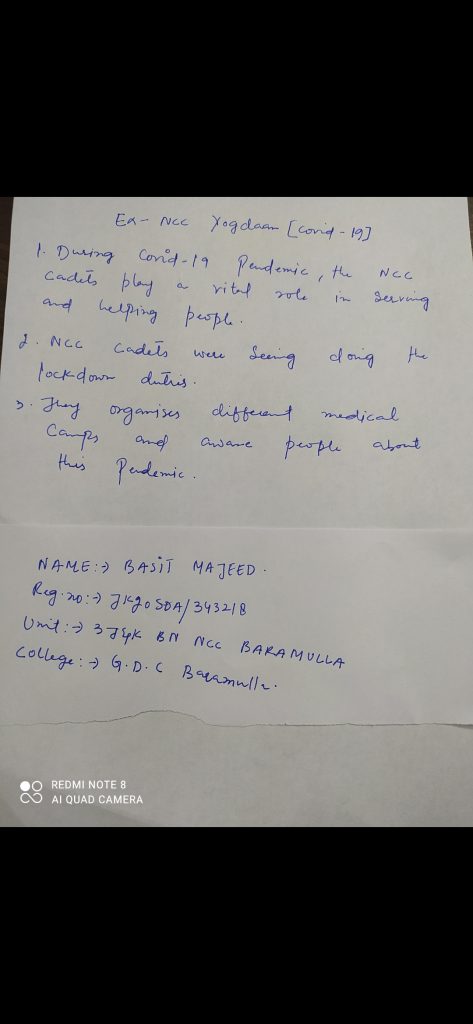 Ex- NCC Yogdaan [Covid-19]
1. During Covid-19 Pendemic, the NCC
cadets play a vital role in serving
and helping people.
2. NCC cadets were seeing doing the
lockdown dutris.
3. They organises different medical
camps and aware people about
this Pendemic.
NAME:→ BASIT MAJEED.
Reg.no:→ JK20SDA/343218
Unit:→ 3 J&K BN NCC BARAMULLA
College:→ G.D.C Baramulla.
REDMI NOTE 8
AI QUAD CAMERA